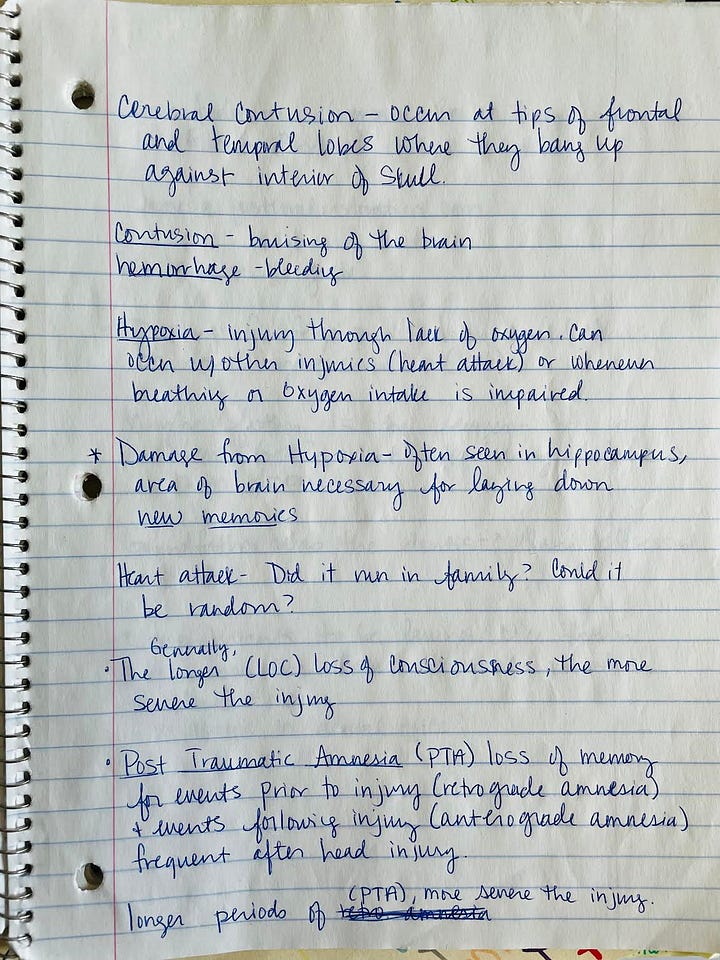 Cerebral Contusion - occur at tips of frontal
and temporal lobes where they bang up
against interior of Skull.
Contusion - bruising of the brain
hemorrhage - bleeding
Hypoxia - injury through lack of oxygen. Can
occur w/other injuries (heart attack) or whenever
breathing or Oxygen intake is impaired.
* Damage from Hypoxia - Often seen in hippocampus,
area of brain necessary for laying down
new memories
Heart attack - Did it run in family? Could it
be random?
Generally,
• The longer (LOC) loss of consciousness, the more
severe the injury
• Post Traumatic Amnesia (PTA) loss of memory
for events prior to injury (retrograde amnesia)
+ events following injury (anterograde amnesia)
frequent after head injury.
(PTA), more severe the injury.
longer periods of